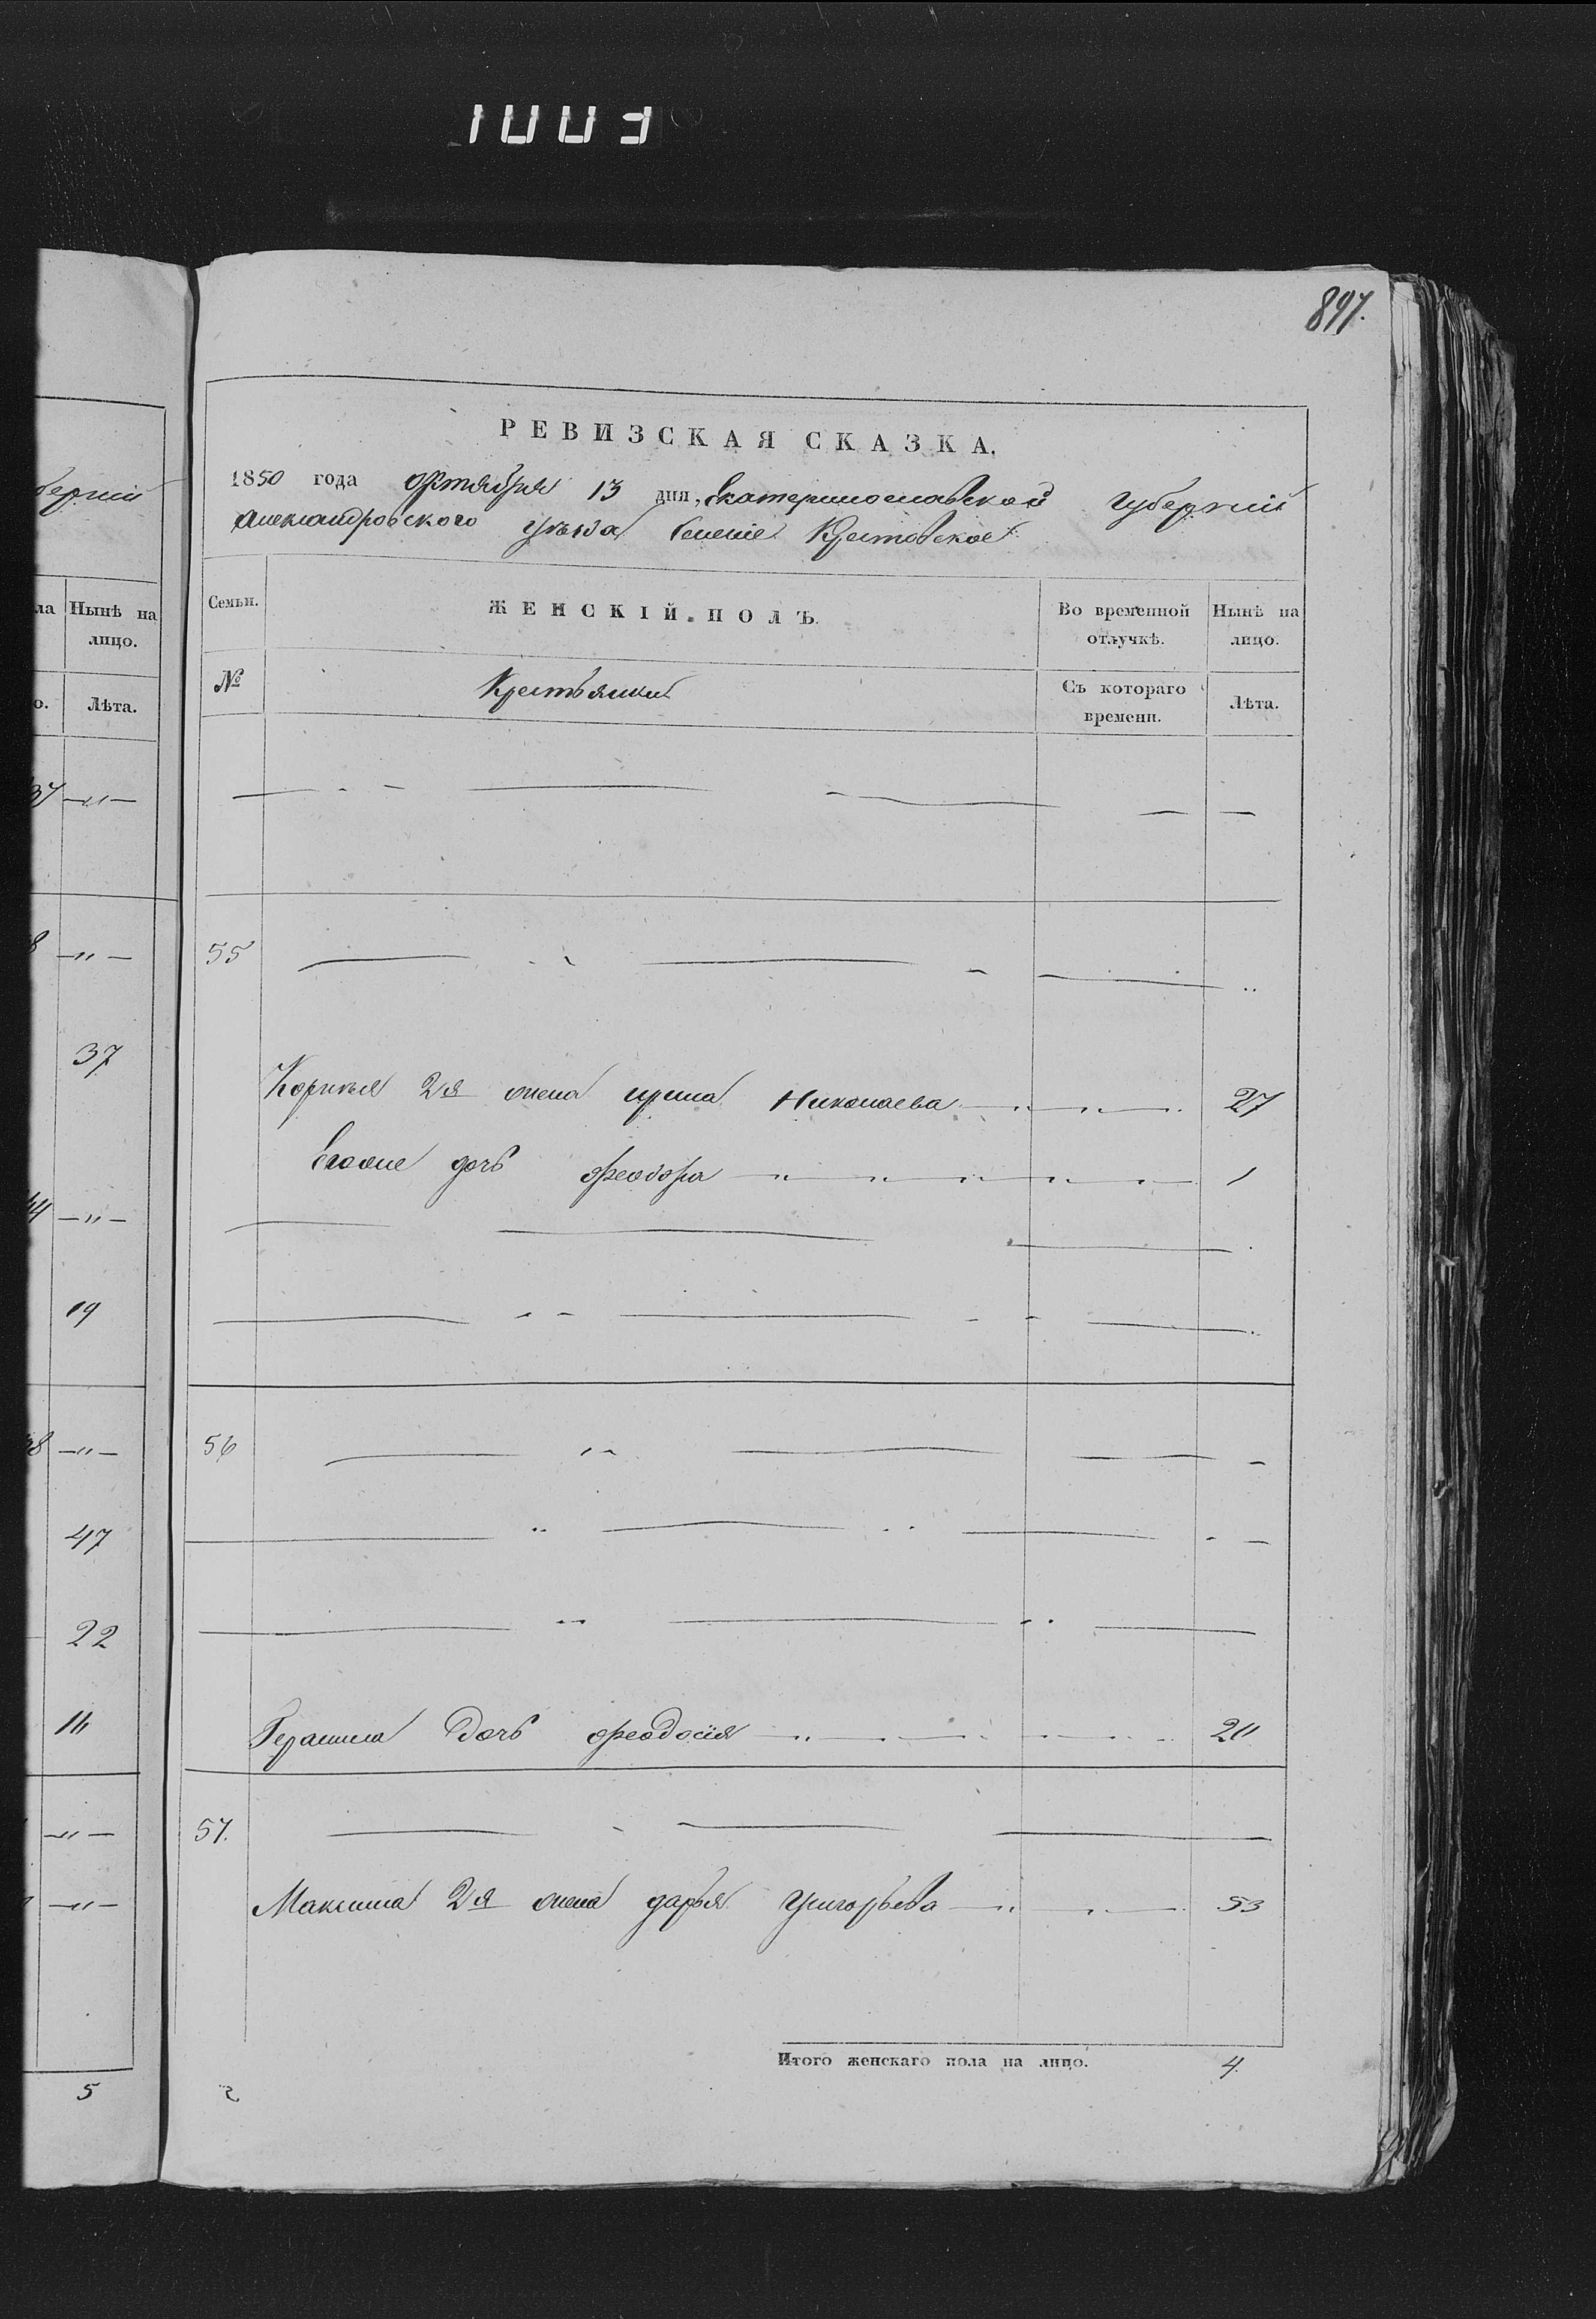 1003
897.
РЕВИЗСКАЯ СКАЗКА.
1850 года октября 13 дня, Екатеринославской губернии
Александровского уезда Селение Крестовское
берний
ла
Нынѣ на лицо.
о.
Лѣта.
37 —"—
8 —"—
37
44 —"—
19
48 —"—
47
22
—"—
—"—
5
Семьи.
ЖЕНСКІЙ ПОЛЪ.
Во временной отлучкѣ.
Нынѣ на лицо.
№
Крестьянки
Съ котораго времени.
Лѣта.
55
Корнѣя 2я жена ирина Николаева 27
Егоже дочь Феодора 1
56
Герасима Дочь Феодосія
57.
Максима 2я жена дарья Григорьева 53
Итого женскаго пола на лицо. 4.